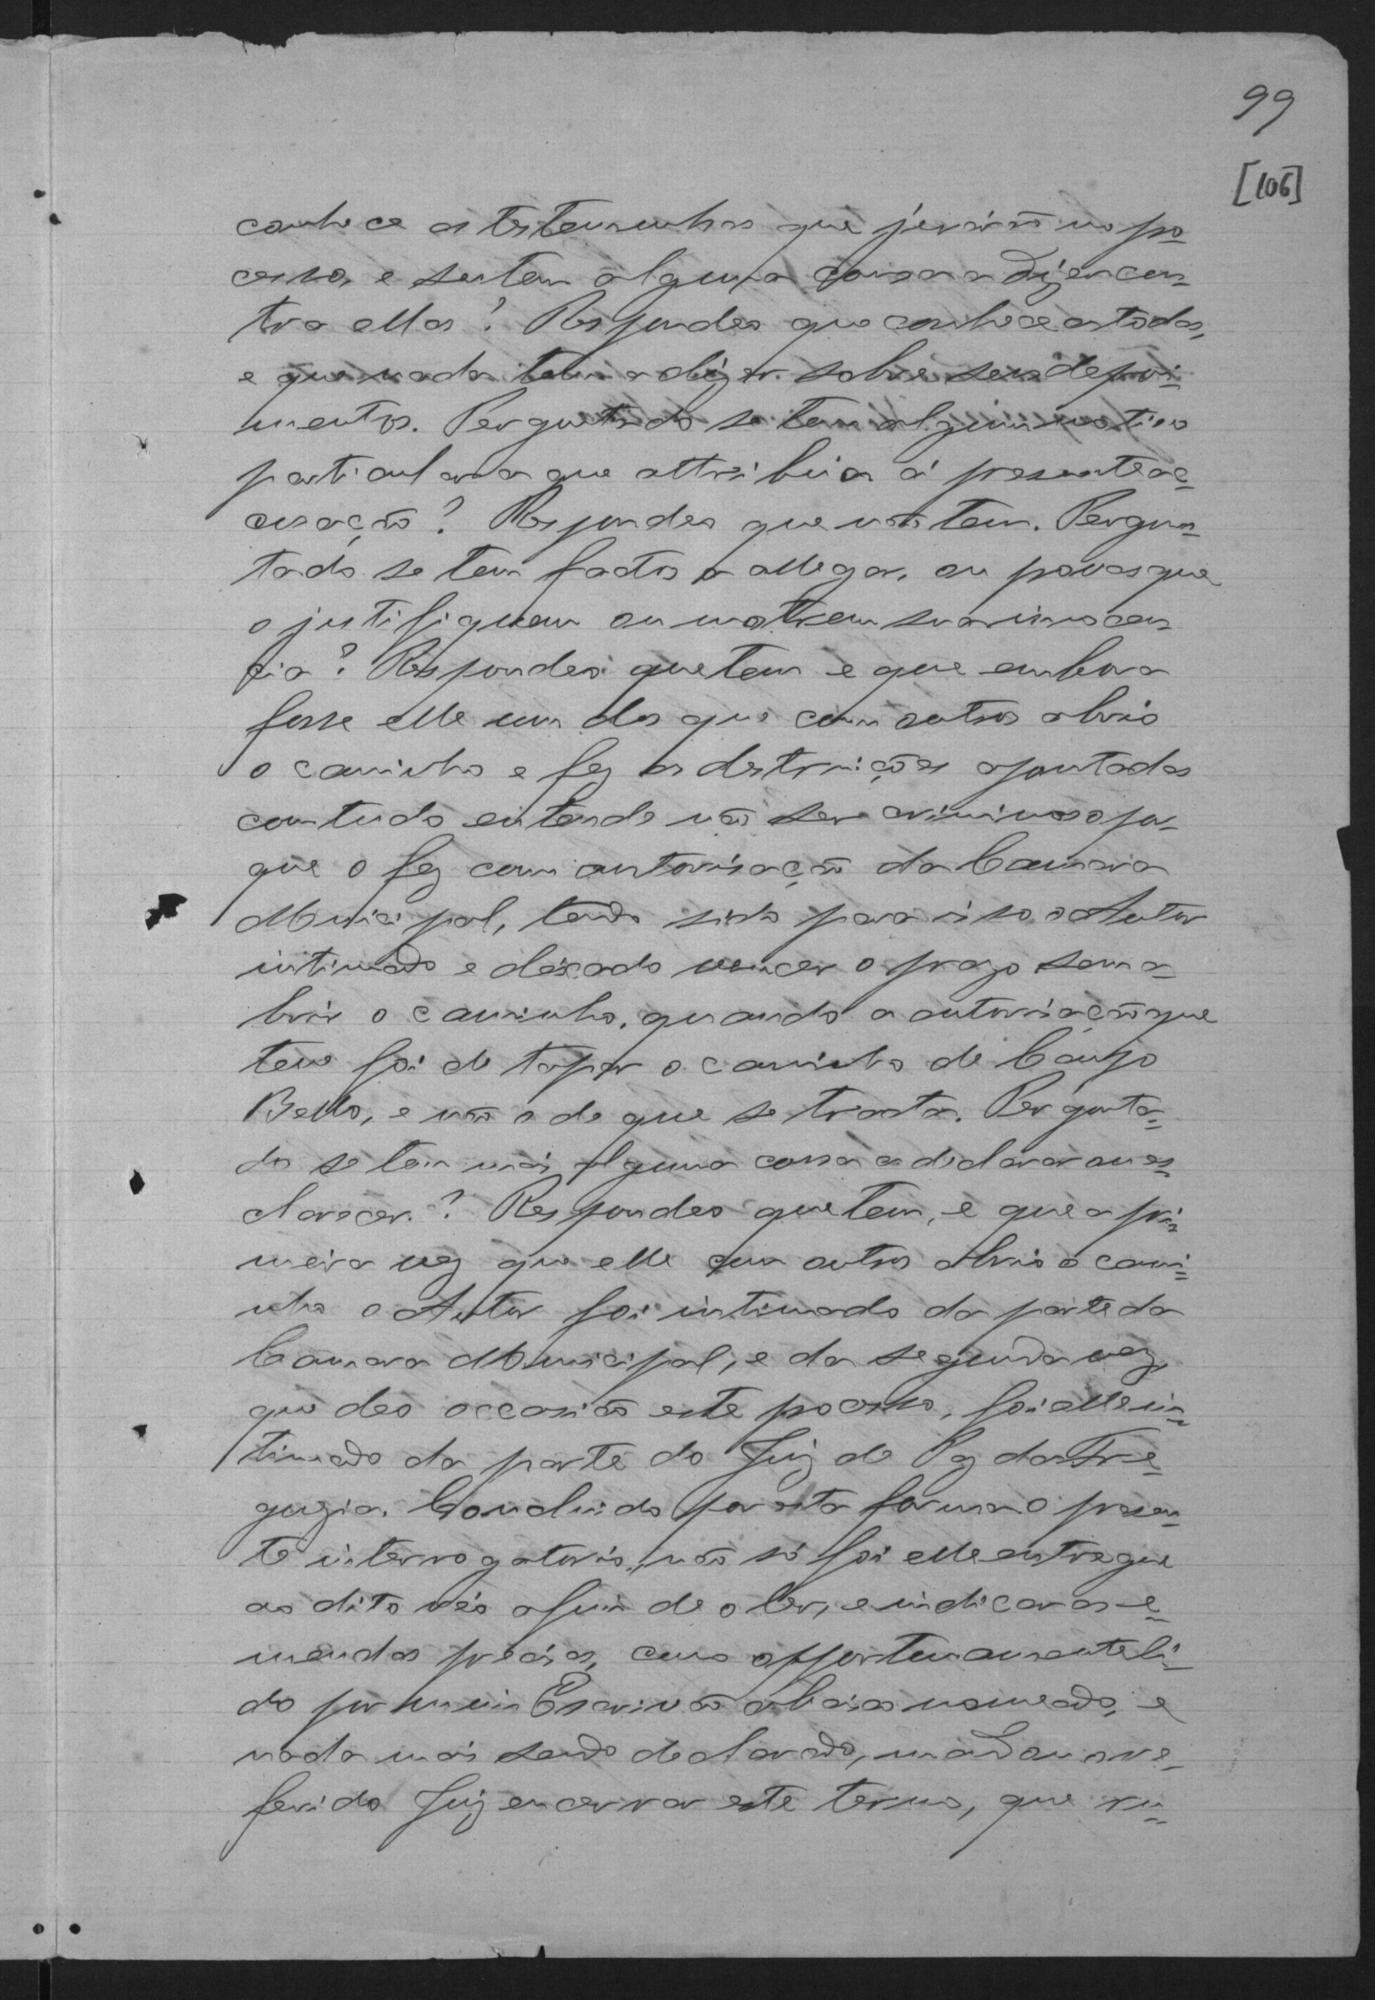 99
[106]
conhece as testemunhas que jurárão no pro-
cesso, e se tem alguma cousa a dizer con-
tra ellas? Respondeo que conhece as todas,
e que nada tem a dizer sobre seus depoi-
mentos. Perguntado se tem algum motivo
particular a que attribúa á presente ac-
cusação? Respondeo que não tem. Pergun-
tado se tem factos a allegar, ou provas que
o justifiquem ou mostrem sua innocen-
cia? Respondeo que tem e que embora
fosse elle um dos que com outros abrio
o caminho e fez as destruições apontadas
comtudo entende não ser criminoso por-
que o fez com autorisação da Camara
Municipal, tendo sido para isso o Autor
intimado e deixado vencer o prazo sem a-
brir o caminho, quando a autorisação que
teve foi de tapar o caminho de Campo
Bello, e não o de que se tracta. Pergunta-
do se tem mais alguma cousa a declarar ou es-
clarecer? Respondeo que tem, e que a pri-
meira vez que elle com outros abrio o cami-
nho o Autor foi intimado da parte da
Camara Municipal, e da segunda vez,
que deo occasião este processo, foi elle in-
timado da parte do Juiz de Paz da Fre-
guezia. Concluido por esta forma o presen-
te interrogatorio, não só foi elle entregue
ao dito réo afim de o ler, e indicar as e-
mendas precisas, como opportunamente li-
do por mim Escrivão abaixo nomeado, e
nada mais sendo declarado, mandou o re-
ferido Juiz encerrar este termo, que ru-